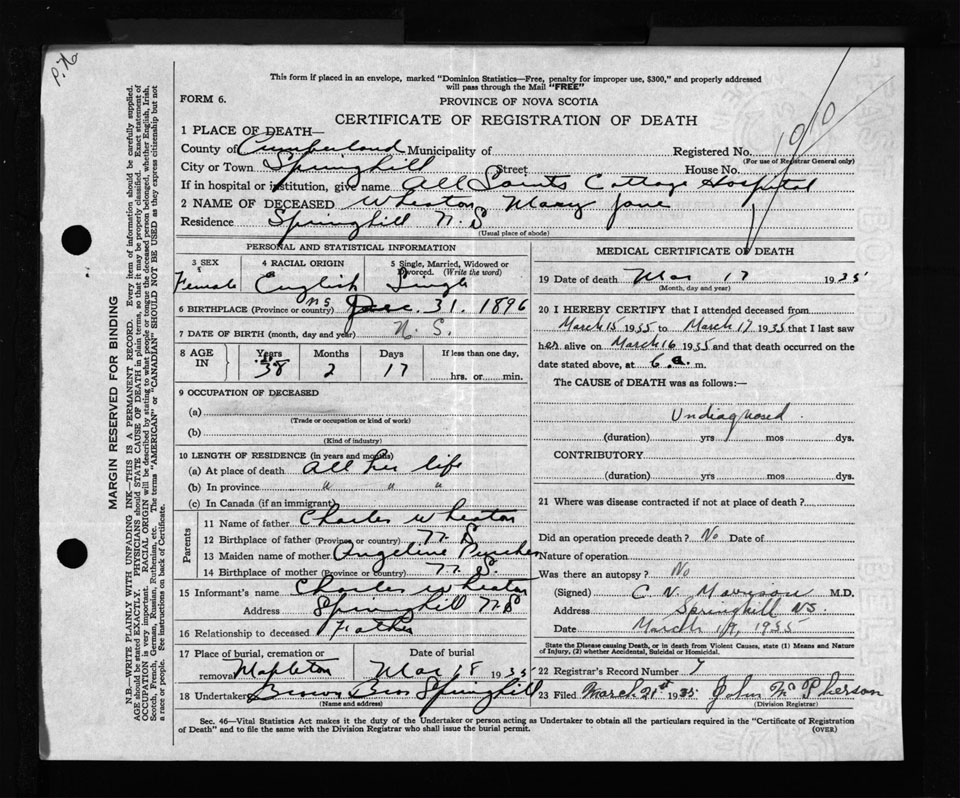 P.N.
1910
This form if placed in an envelope, marked "Dominion Statistics—Free, penalty for improper use, $300," and properly addressed
will pass through the Mail "FREE"
FORM 6.
PROVINCE OF NOVA SCOTIA
CERTIFICATE OF REGISTRATION OF DEATH
1 PLACE OF DEATH—
County of Cumberland Municipality of Registered No.
(For use of Registrar General only)
City or Town Springhill Street House No.
If in hospital or institution, give name All Saints Cottage Hospital
2 NAME OF DECEASED Wheaton Mary Jane
Residence Springhill N.S
(Usual place of abode)
PERSONAL AND STATISTICAL INFORMATION
3 SEX 4 RACIAL ORIGIN 5 Single, Married, Widowed or
Divorced. (Write the word)
Female English Single
6 BIRTHPLACE (Province or country) N.S. Dec. 31. 1896
7 DATE OF BIRTH (month, day and year) N. S.
8 AGE IN Years Months Days If less than one day,
38 2 17 hrs. or min.
9 OCCUPATION OF DECEASED
(a)
(Trade or occupation or kind of work)
(b)
(Kind of industry)
10 LENGTH OF RESIDENCE (in years and months)
(a) At place of death all her life
(b) In province " " "
(c) In Canada (if an immigrant)
Parents
11 Name of father Charles Wheaton
12 Birthplace of father (Province or country) N. S
13 Maiden name of mother Angeline
14 Birthplace of mother (Province or country) N. S.
15 Informant's name Charles Wheaton
Address Springhill N.S
16 Relationship to deceased Father
17 Place of burial, cremation or removal Date of burial
Mapleton Mar 18 1935
18 Undertaker Brown Bros Springhill
(Name and address)
MEDICAL CERTIFICATE OF DEATH
19 Date of death Mar 17 1935
(Month, day and year)
20 I HEREBY CERTIFY that I attended deceased from
March 15 1935 to March 17 1935 that I last saw
her alive on March 16 1935 and that death occurred on the
date stated above, at 6. a. m.
The CAUSE of DEATH was as follows:—
Undiagnosed.
(duration) yrs mos dys.
CONTRIBUTORY
(duration) yrs mos dys.
21 Where was disease contracted if not at place of death?
Did an operation precede death? No Date of
Nature of operation
Was there an autopsy? No
(Signed) C. N. Morrison M.D.
Address Springhill NS
Date March 19, 1935
State the Disease causing Death, or in death from Violent Causes, state (1) Means and Nature
of Injury, (2) whether Accidental, Suicidal or Homicidal.
22 Registrar's Record Number 7
23 Filed March 21st 1935 John McPherson
(Division Registrar)
Sec. 46—Vital Statistics Act makes it the duty of the Undertaker or person acting as Undertaker to obtain all the particulars required in the "Certificate of Registration
of Death" and to file the same with the Division Registrar who shall issue the burial permit.
(OVER)
MARGIN RESERVED FOR BINDING
N.B.—WRITE PLAINLY WITH UNFADING INK—THIS IS A PERMANENT RECORD. Every item of information should be carefully supplied.
AGE should be stated EXACTLY. PHYSICIANS should STATE CAUSE OF DEATH in plain terms, so that it may be properly classified. Exact statement of
OCCUPATION is very important. RACIAL ORIGIN will be described by stating to what people or tongue the deceased person belonged, whether English, Irish,
Scotch, French, German, Russian, Ruthenian, etc. The terms "AMERICAN" or "CANADIAN" SHOULD NOT BE USED as they express citizenship but not
a race or people. See instructions on back of Certificate.